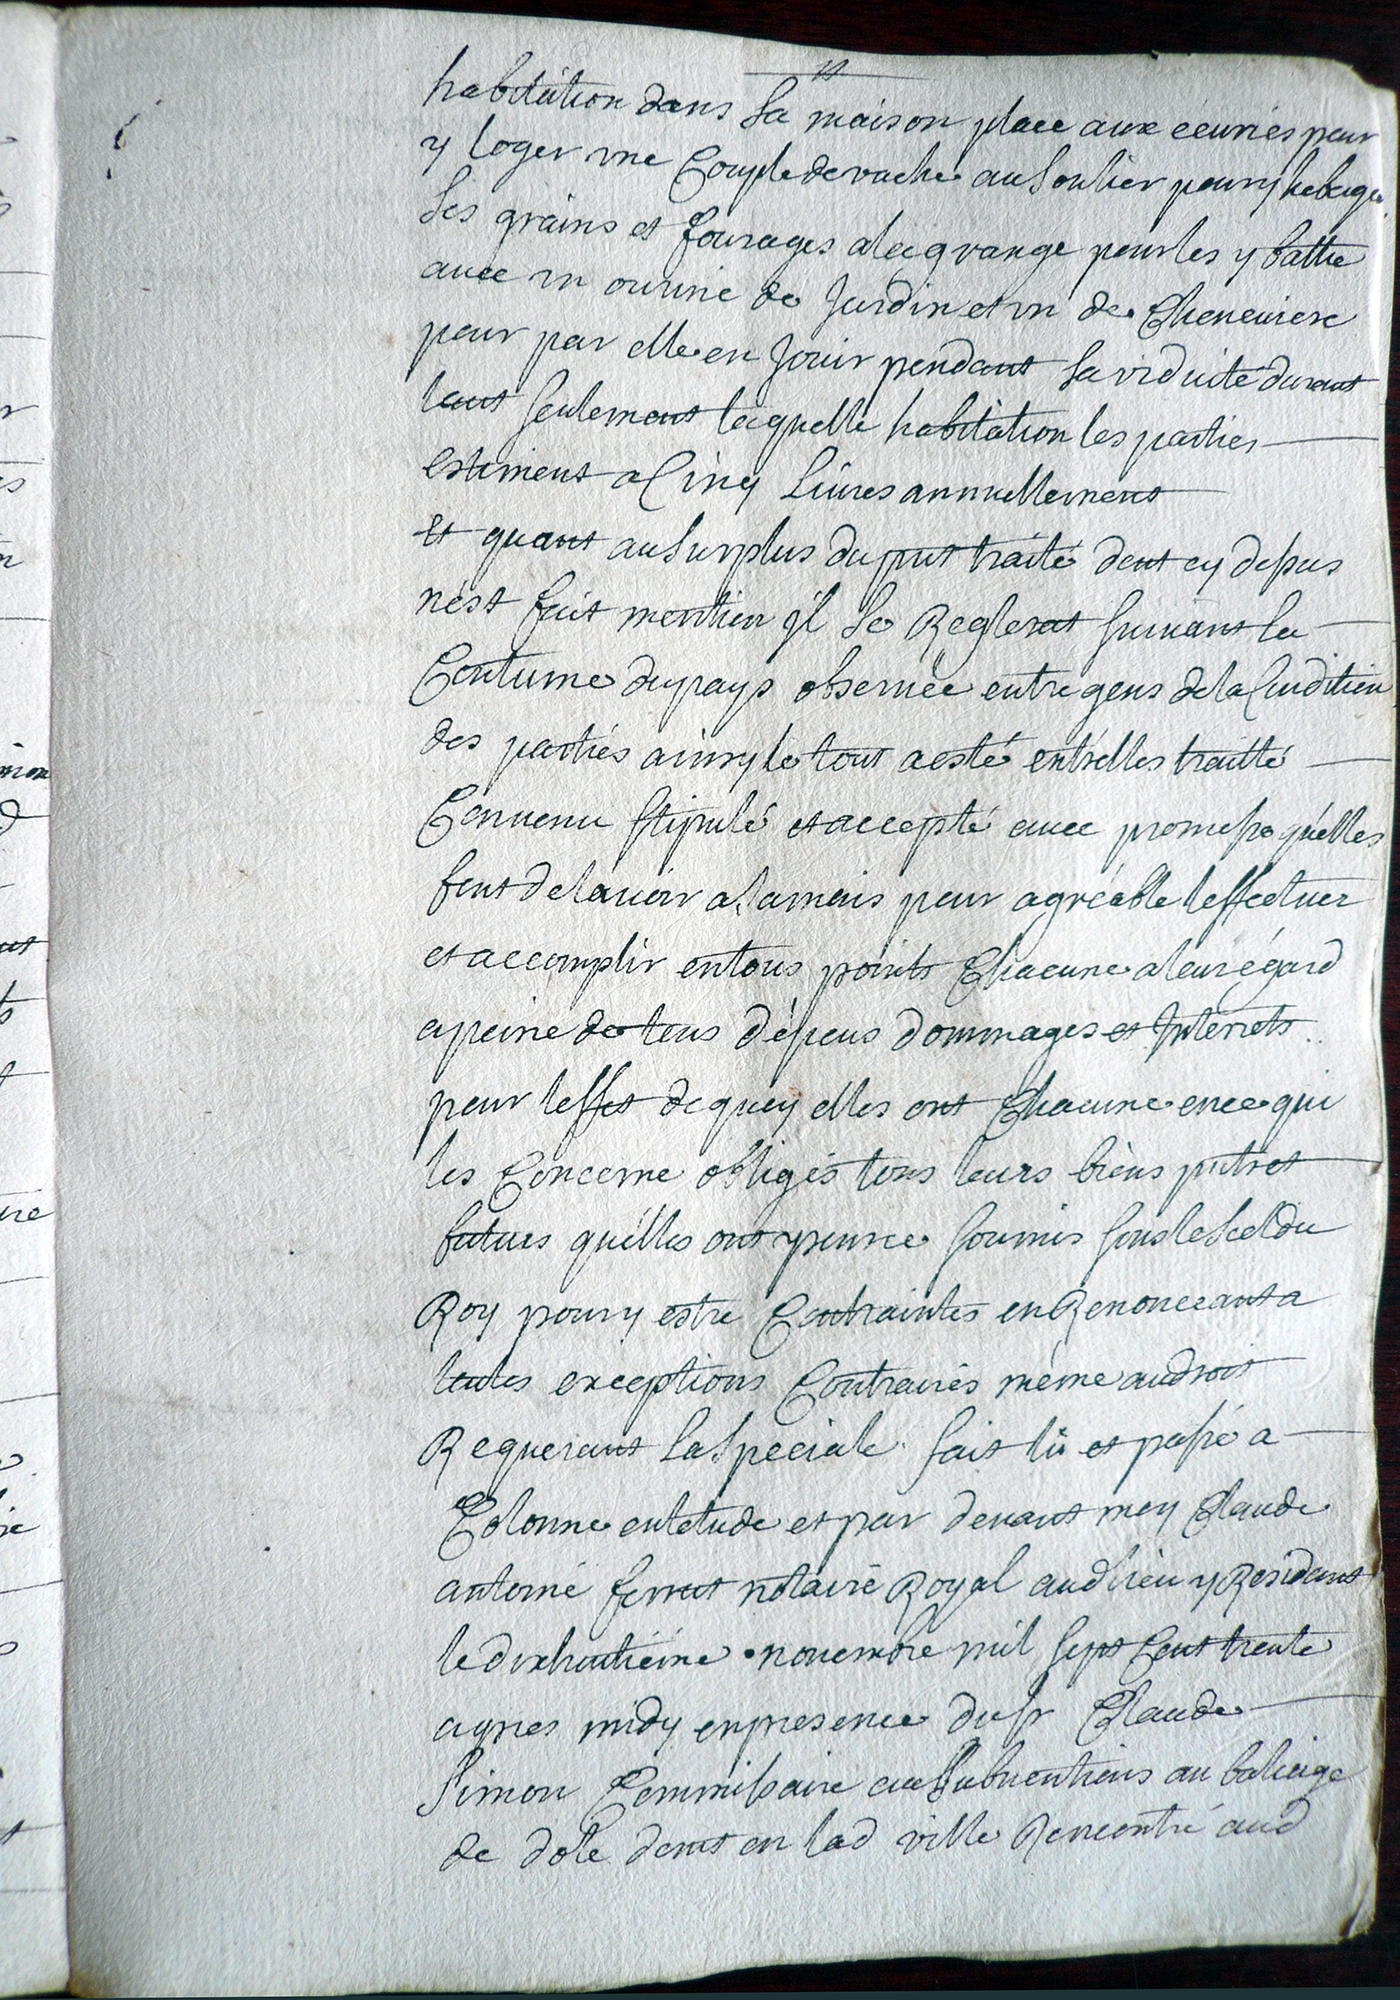 habitation dans sa maison place aux ecuries pour
y loger une couple de vache au soulier pour y heberger
ses grains et fourages a la grange pour les y battre
avec un ouvrié de jardin et un de cheneviere
pour par elle en jouir pendant sa viduité durant
tant seulement laquelle habitation les parties
estiment a cinq livres annuellement
Et quant au surplus du pnt traité dont cy dessus
n'est fait mention il se reglerat suivant la
Coutume du pays observée entre gens de la condition
des parties ainsy le tout a esté entr'elles traitté
Convenu stipulé et accepté avec promesse qu'elles
font de l'avoir a jamais pour agréable l'effectuer
et accomplir en tous points chacune a leur égard
a peine de tous dépens dommages et interrets
pour l'effet de quoy elles ont chacune en ce qui
les concerne obligés tous leurs biens pnts et
futurs qu'elles ont pour ce soumis sous le scel du
Roy pour y estre contraintes en renonceant a
toutes exceptions contraires même au droit
Requerant la speciale fait lû et passé a
Colonne en l'etude et par devant moy Claude
antoine ferrut notaire Royal aud lieu y residant
le dixhuitiéme novembre mil sept cent trente
apres midy en presence du sr Claude
Simon Commissaire aux subventions au baliage
de dole demt en lad ville rencontré aud